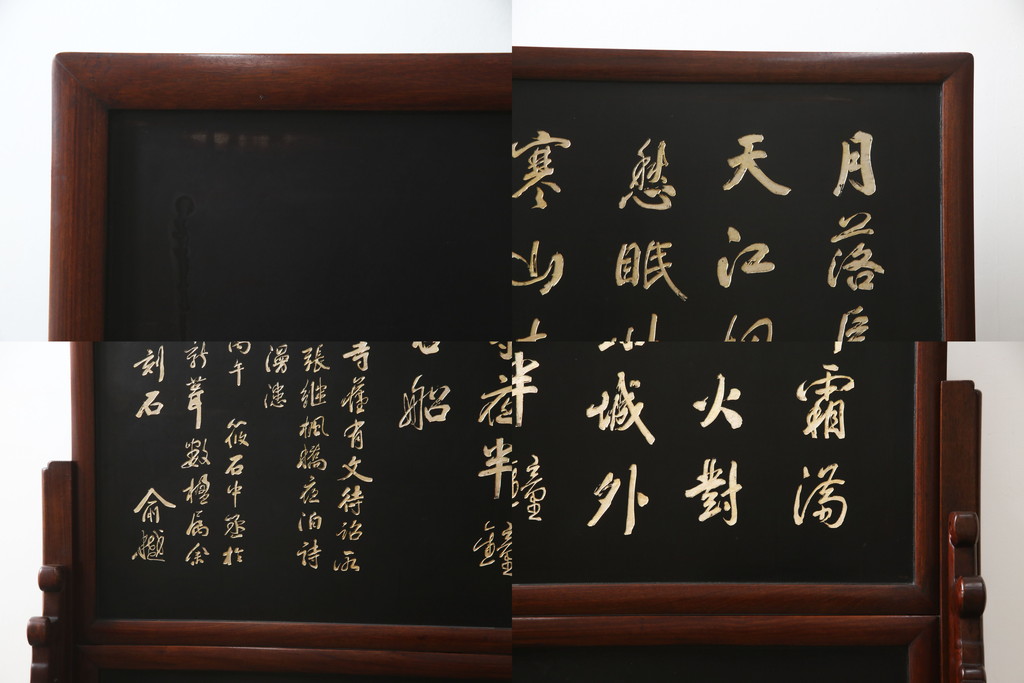 月落
天江
愁眠
寒山
霜滿
火對
城外
夜半鐘
船
寺舊有文待詔所
張繼楓橋夜泊詩
漫漶
丙午 筱石中丞於
新葺數楹屬余
刻石 俞樾